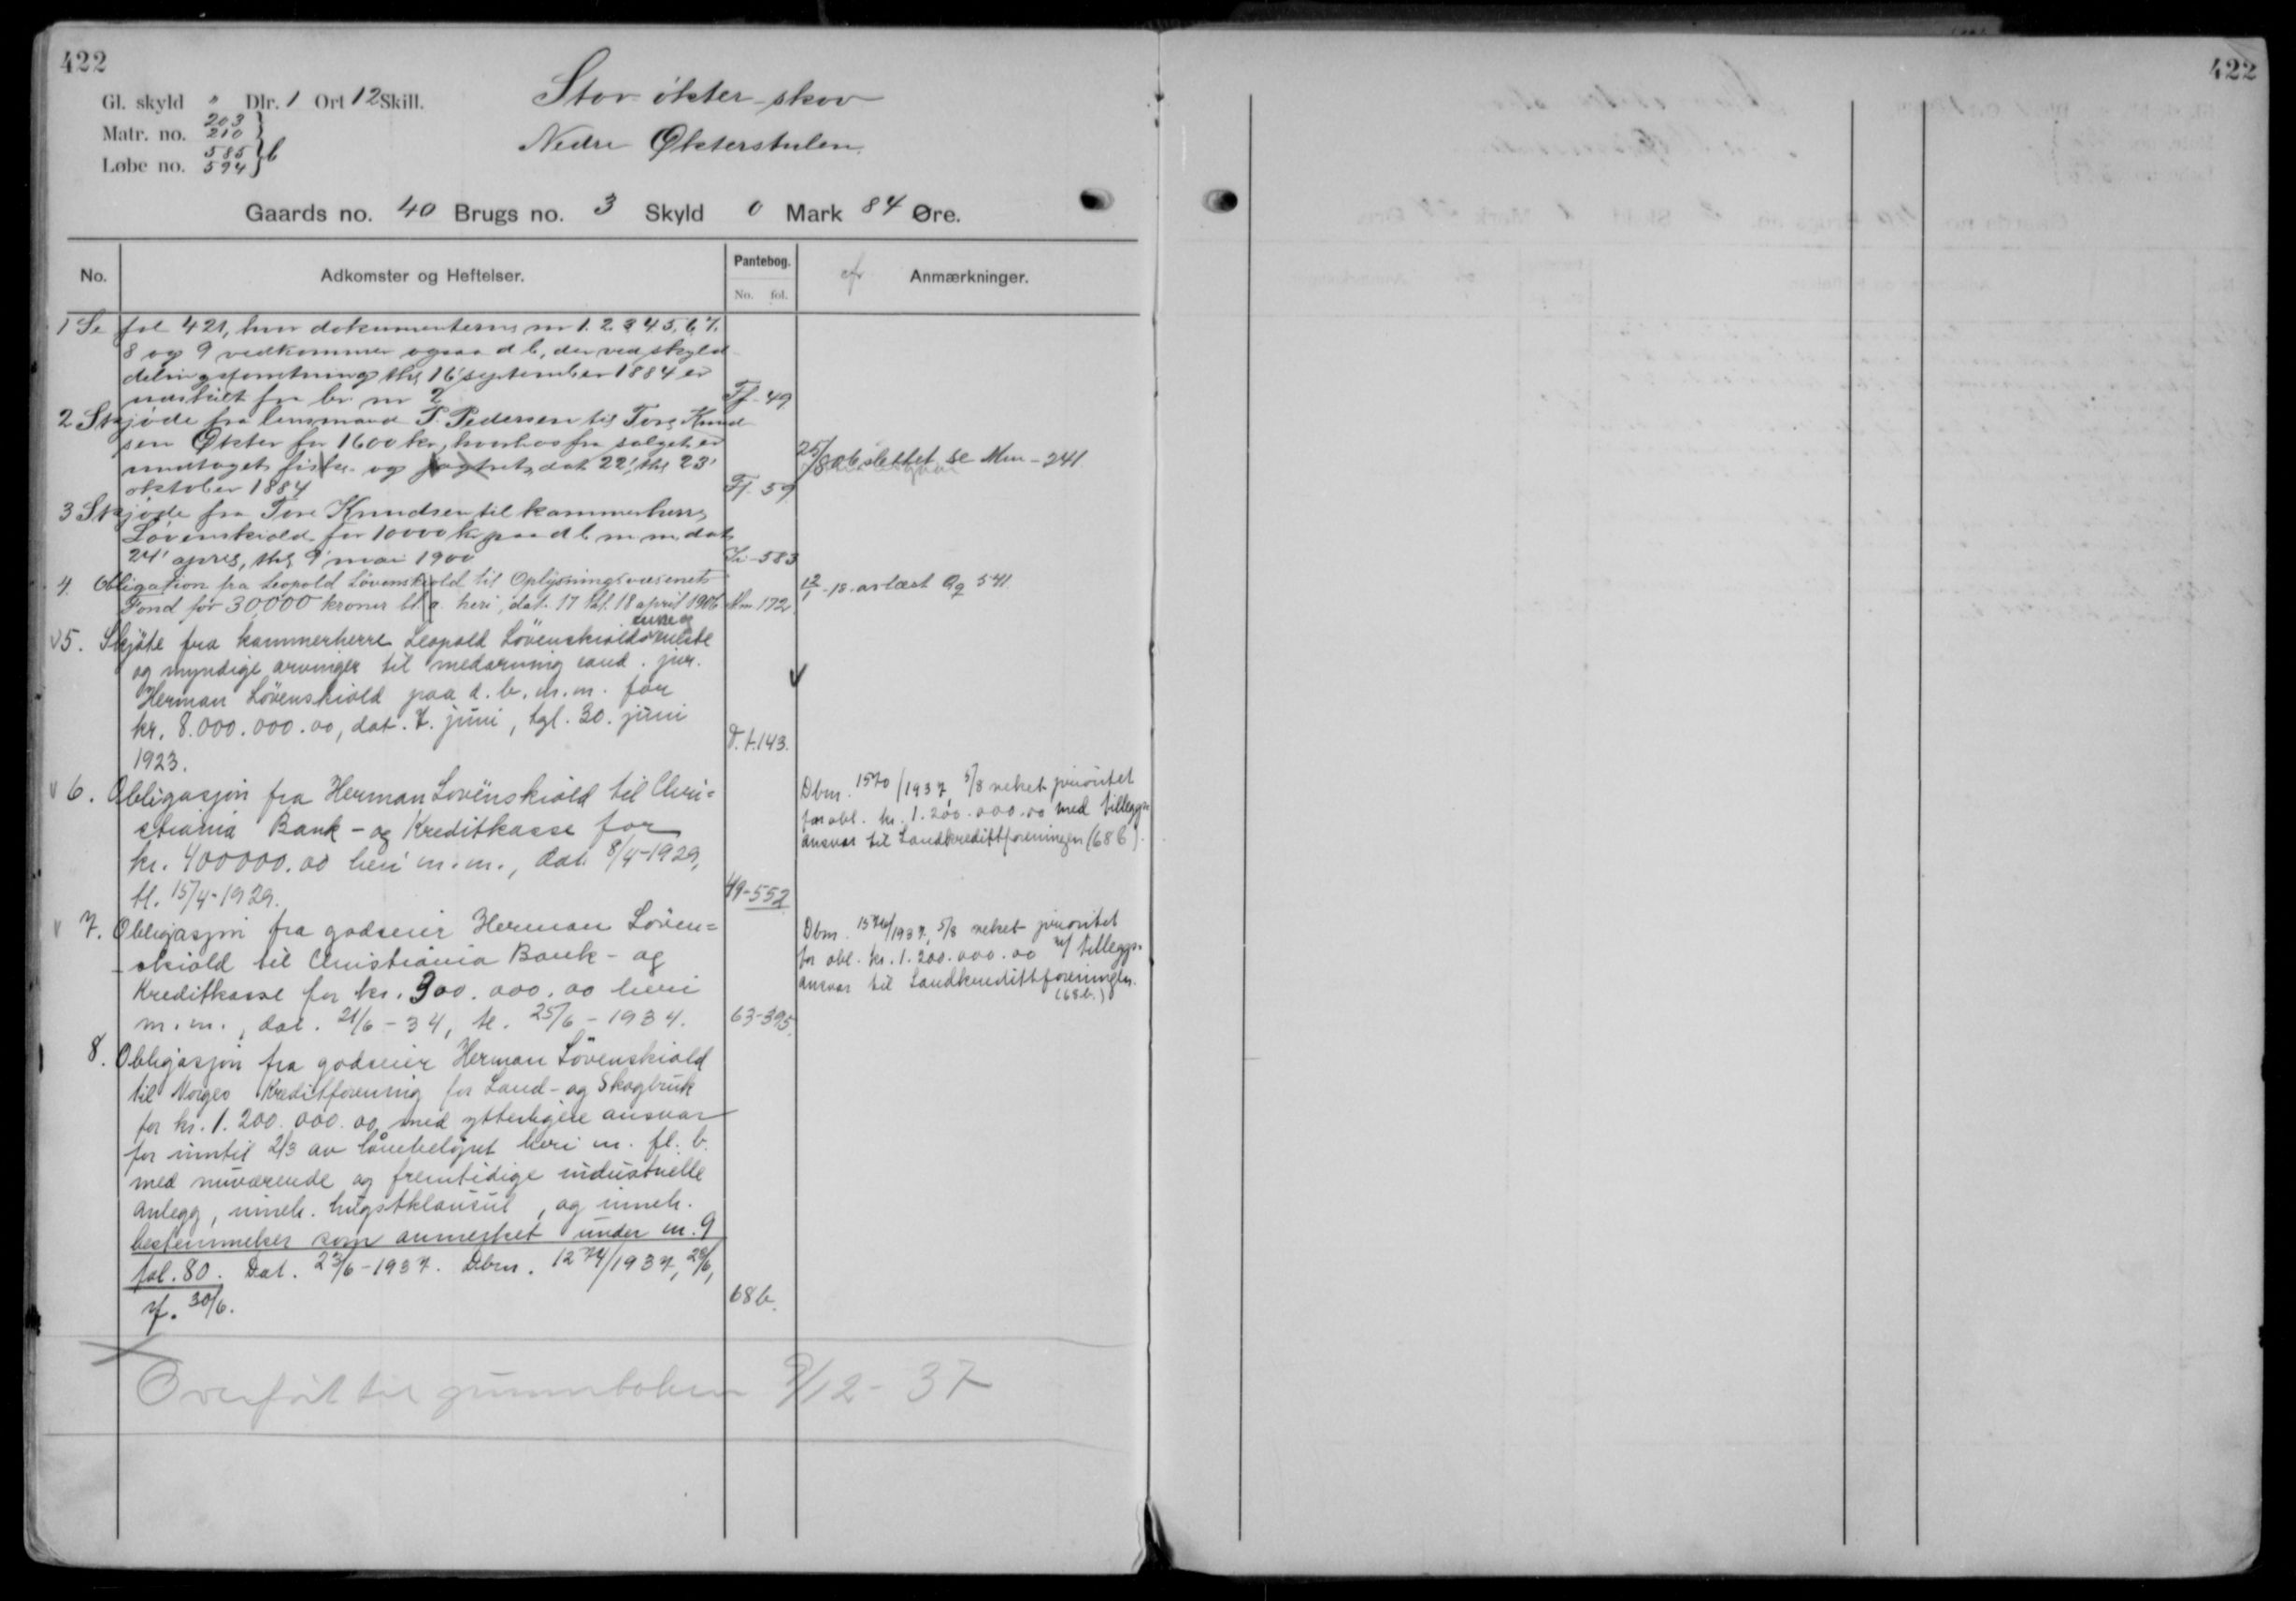 422
422
Gl. skyld " Dlr. 1 Ort 12 Skill.
Stor-økter-skov
Matr. no. 203 210
Nedre Økterstulen
Løbe no. 585 594 } b
Gaards no. 40 Brugs no. 3 Skyld 0 Mark 84 Øre.
No. Adkomster og Heftelser. Pantebog. No. fol. cfr Anmærkninger.
1 Se fol 421, hvor dokumenterne nr 1. 2. 3 4. 5. 6. 7.
8 og 9 vedkommer ogsaa d b, der ved skyld
delingsforretning thl 16' september 1884 er
udskilt fra br nr 2 Ff-49
2 Skjøde fra lensmand P. Pedersen til Tore Knud
sen Økter for 1600 kr, hvorhos fra salget er
undtaget fiske- og jagtret, dat 22', thl 23'
oktober 1884 Ff. 59
25/8 06 slettet se Mm-241
3 Skjøde fra Tore Knudsen til kammerherre
Løvenskiold for 10000 kr paa d b m m, dat
24' april, thl 9' mai 1900 583
4. Obligation fra Leopold Løvenskiold til Oplysningsvæsenets
Fond for 30000 kroner bl. a. heri, dat. 17 thl. 18 april 1906 Mm. 172
12/1-18. avlæst Aq 541
v5. Skjøte fra kammerherre Leopold Løvenskiolds enke og
og myndige arvinger til medarving cand. jur.
Herman Løvenskiold paa d. b. m. m. for
kr. 8.000.000.00, dat. 7. juni, tgl. 30. juni
1923. 143.
v
v 6. Obligasjon fra Herman Løvenskiold til Chri=
stiania Bank- og Kreditkasse for
kr. 400000.00 heri m. m., dat. 8/4-1929,
tl. 15/4-1929. 49-552
Dbnr. 1570/1937, 5/8 veket prioritet
for obl. kr. 1.200.000.00 med tilleggs-
ansvar til Landkredittforeningen (68 b).
v 7. Obligasjon fra godseier Herman Løven=
skiold til Christiania Bank- og
Kreditkasse for kr. 300.000.00 heri
m. m., dat. 21/6-34, tl. 25/6-1934. 63-395.
Dbnr. 1570/1937, 5/8 veket prioritet
for obl. kr. 1.200.000.00 m/ tilleggs-
ansvar til Landkredittforeningen.
(68 b.)
8. Obligasjon fra godseier Herman Løvenskiold
til Norges Kreditforening for Land- og Skogbruk
for kr. 1.200.000.00 med ytterligere ansvar
for inntil 2/3 av lånebeløpet heri m. fl. b.
med nuværende og fremtidige industrielle
anlegg, inneh. hugstklausul, og inneh.
bestemmelser som anmerket under nr. 9
fol. 80. Dat. 23/6-1937. Dbnr. 1274/1937, 28/6,
rf. 30/6. 68 b.
Overført til grunnboken 9/12-37